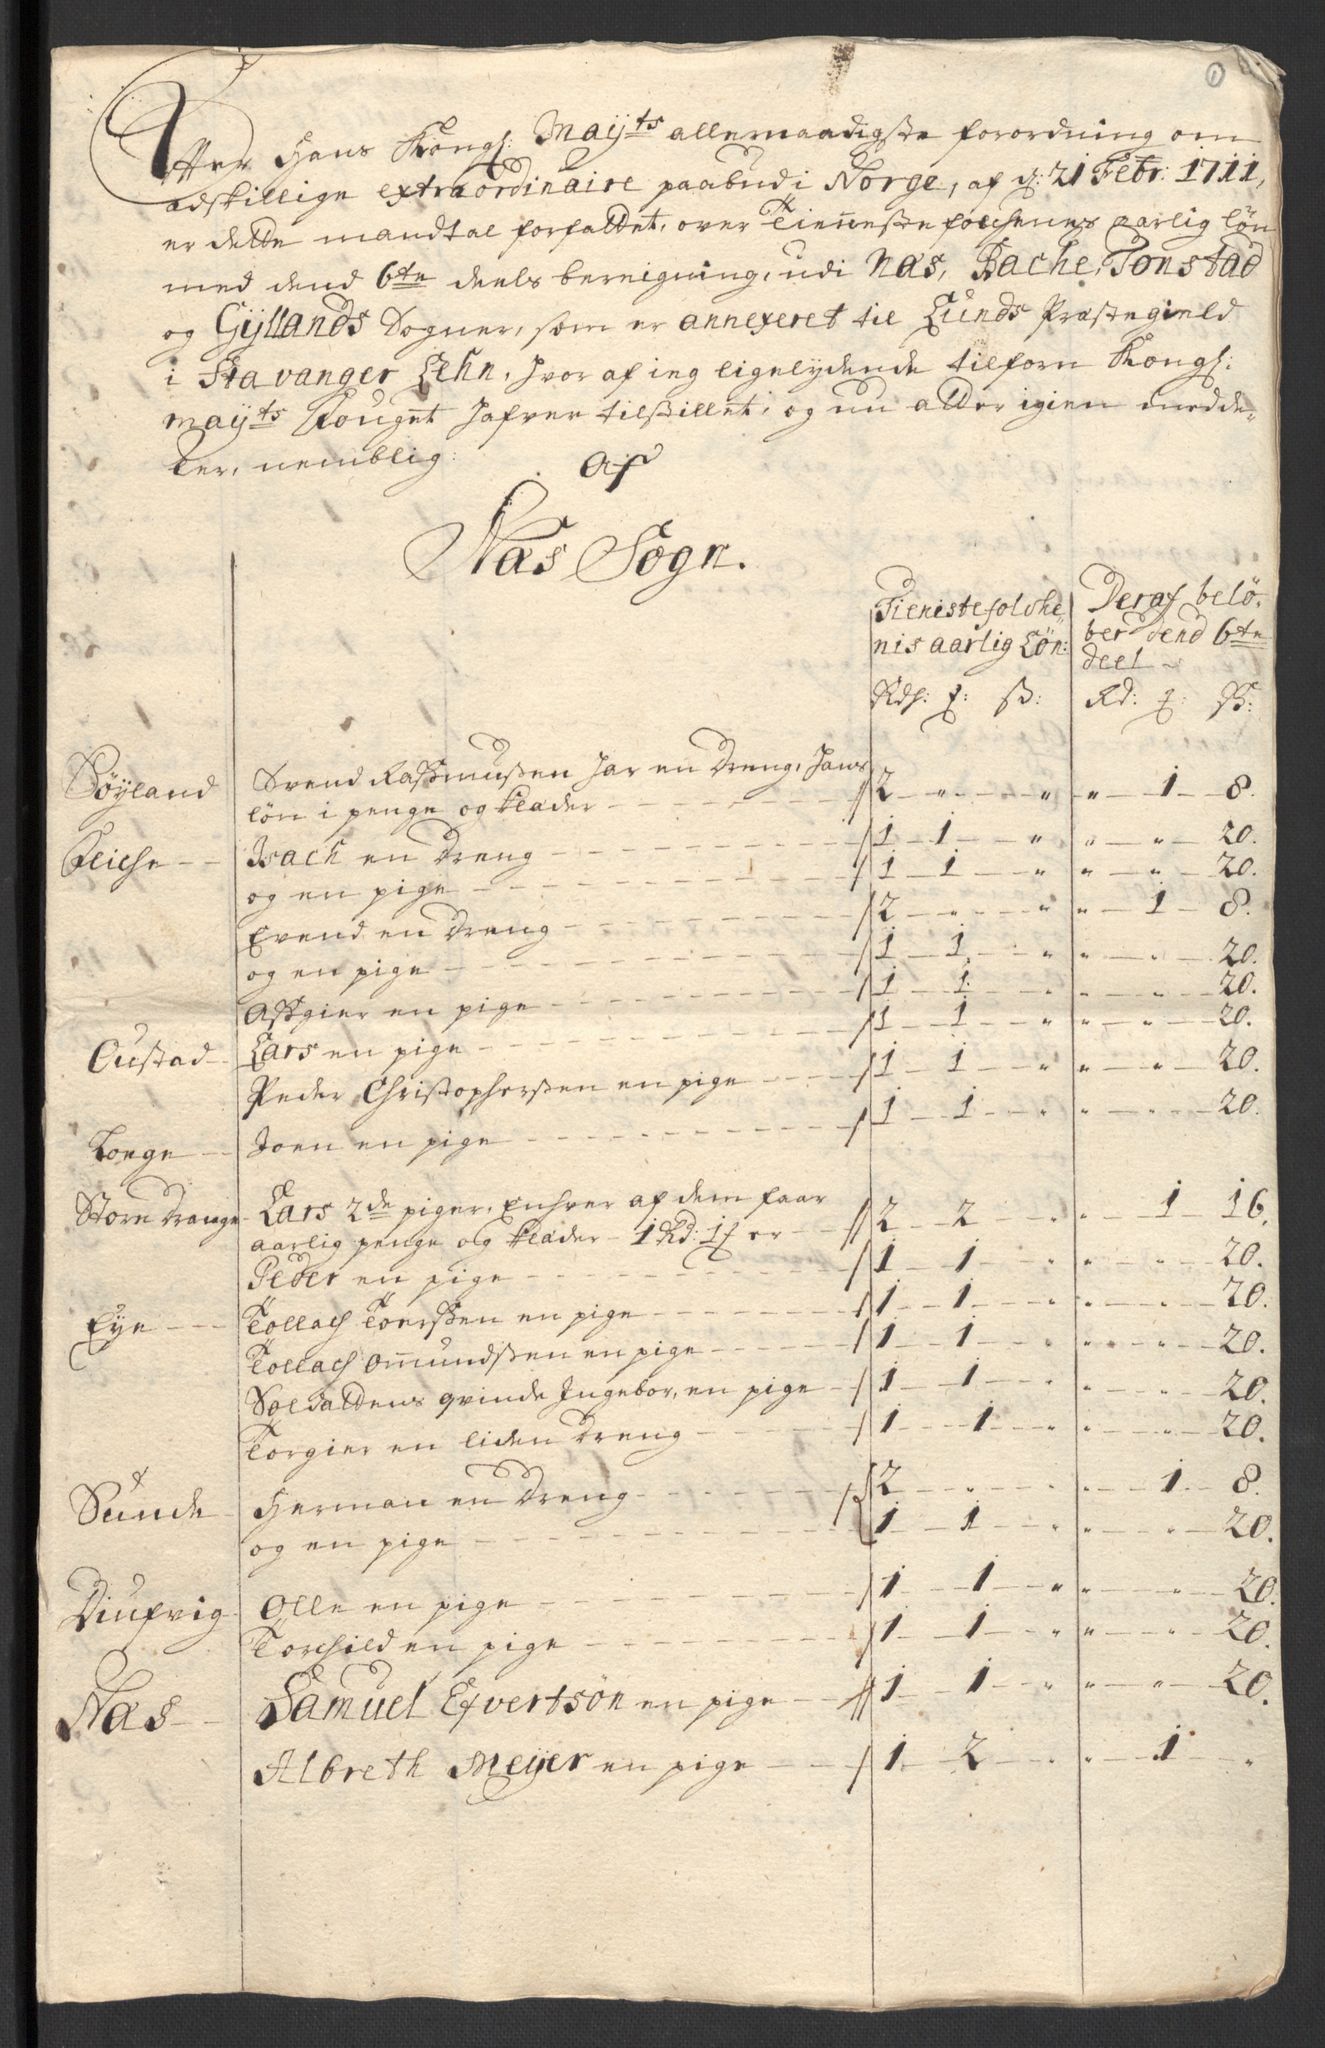 1
Efter Hans Kongl: Mayts allernaadigste forordning om
adskillige extraordinaire paabud i Norge, af d: 21 Febr: 1711,
er dette mandtal forfattet, over Tienneste folchenes aarlig lön
med dend 6te deels bereigning, udi Næs, Bache, Tonstad
og Gyllands Sogner, som er annexeret til Lunds Præstegield
i Stavanger Lehn, hvor af ieg ligelydende tilforn Kongl:
mayts Fouget hafver tilstillet, og nu atter igien medde-
ler, nemblig:
Af
Næs Sogn.
Tienistefolche- Deraf belö-
nis aarlig Lön: ber dend 6te
deel
Rdl: ʒ: ß: Rd: ʒ: ß:
Böyland Svend Rassmussen har en Dreng, hans
lön i penge og klæder 2 " " " 1 8.
Fliche Isach en Dreng 1 1 " " " 20.
og en pige 1 1 " " " 20.
Evend en Dreng 2 " " " 1 8.
og en pige 1 1 " " " 20.
Assgier en pige 1 1 " " " 20.
Oustad Lars en pige 1 1 " " " 20.
Peder Christophersen en pige 1 1 " " " 20.
Loege Joen en pige 1 1 " " " 20.
Store Drange Lars 2de piger, Enhver af dem faar
aarlig penge og klæder 1 Rd: 1ʒ er 2 2 " " 1 16.
Peder en pige 1 1 " " " 20.
Eye Tollach Toerssen en pige 1 1 " " " 20.
Tollach Omundssen en pige 1 1 " " " 20.
Soldattens qvinde Ingebor, en pige 1 1 " " " 20.
Torgier en liden Dreng 1 1 " " " 20.
Sunde Herman en Dreng 2 " " " 1 8.
og en pige 1 1 " " " 20.
Diufvig Olle en pige 1 1 " " " 20.
Torchild en pige 1 1 " " " 20.
Næs Samuel Efvertsön en pige 1 1 " " " 20.
Albreth Meyer en pige 1 2 " " 1 "